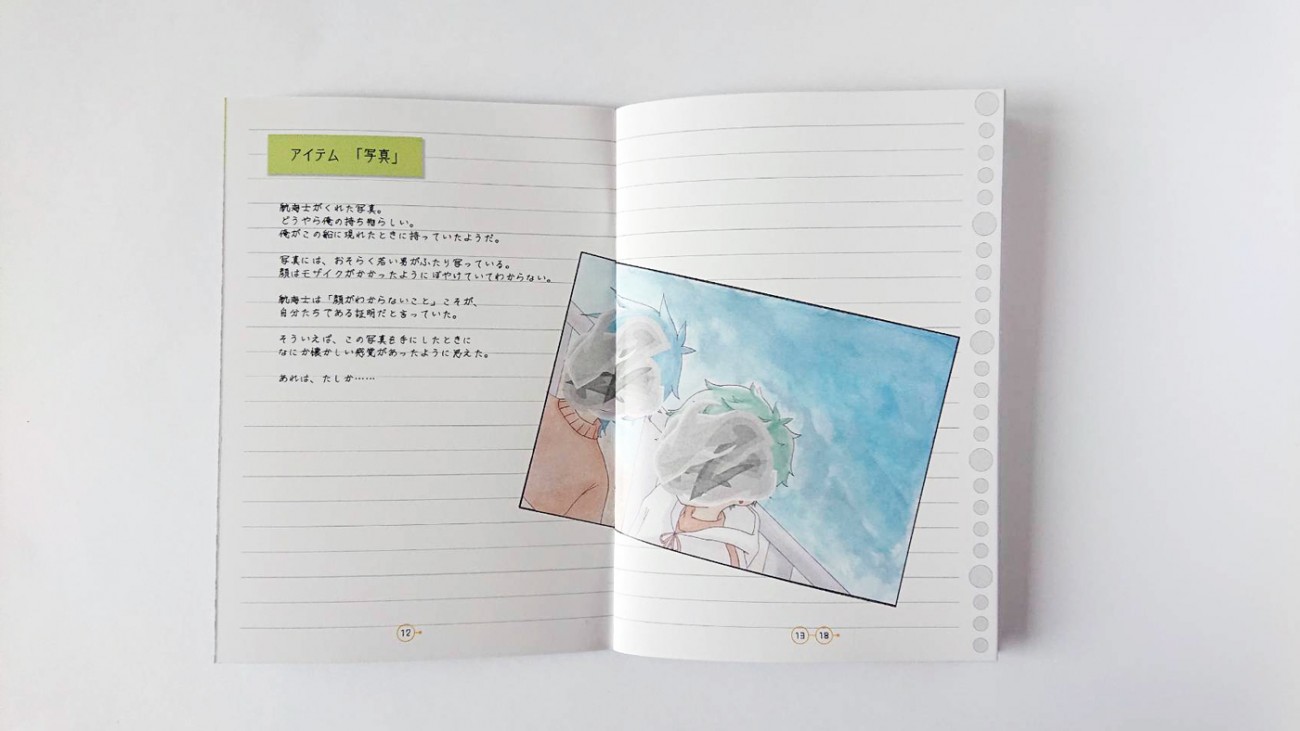 アイテム 「写真」
航海士がくれた写真。
どうやら俺の持ち物らしい。
俺がこの船に現れたときに持っていたようだ。
写真には、おそらく若い男がふたり写っている。
顔はモザイクがかかったようにぼやけていてわからない。
航海士は「顔がわからないこと」こそが、
自分たちである証明だと言っていた。
そういえば、この写真を手にしたときに
なにか懐かしい感覚があったように思えた。
あれは、たしか……
12
13 18